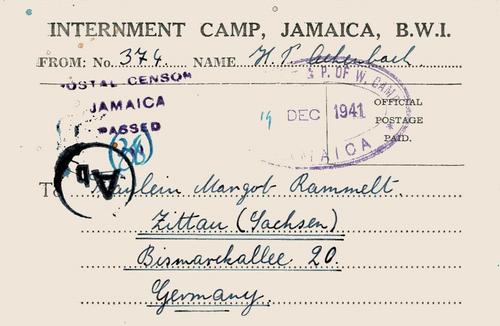 INTERNMENT CAMP, JAMAICA, B.W.I.
FROM: No. 374. NAME H. P. Achenbach.
POSTAL CENSOR
JAMAICA
PASSED
& P. OF W. CAMP
DEC 1941
JAMAICA
OFFICIAL
POSTAGE
PAID.
To Fräulein Margot Rammelt.
Zittau (Sachsen)
Bismarckallee 20.
Germany.